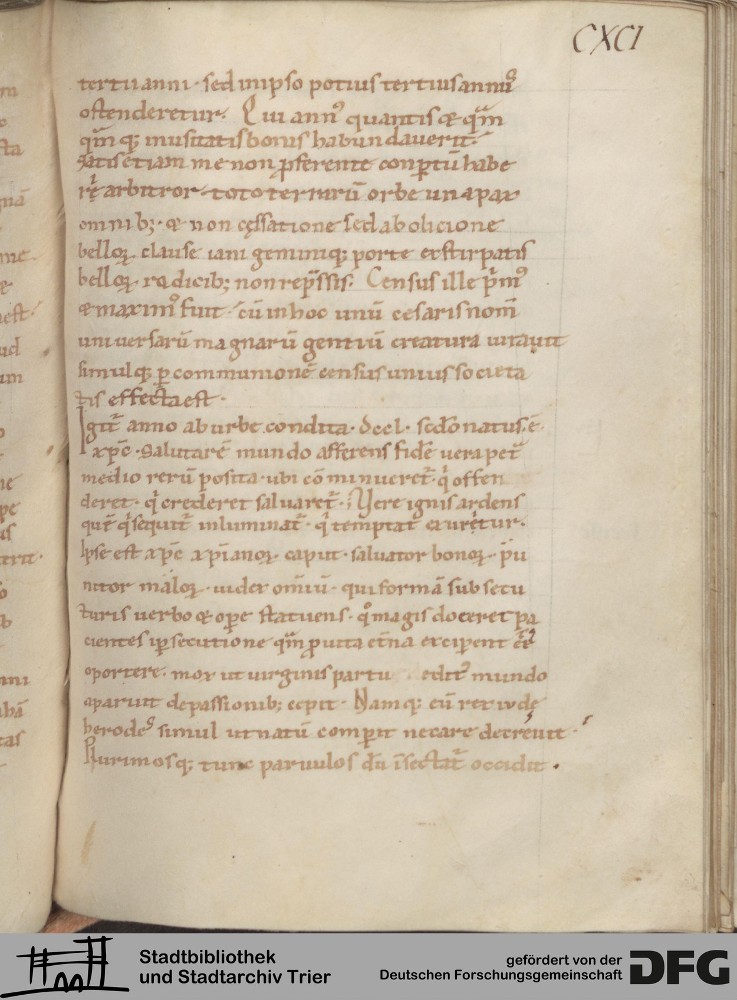 CXCI
tertii anni · sed in ipso potius tertius annꝰ
ostenderetur. Qui annꝰ quantis & qͣm
qͣmq; inusitatis bonis habundaverit ·
satis etiam me non p̄ferente conꝑtū habe
rę arbitror · toto terrarū orbe una pax
omnib; · & non cęssatione sed abolicione
belloꝝ clause iani geminiq; porte exstirpatis
belloꝝ radicib; non rep̄ssis. Census ille p̄mꝰ
& maximꝰ fuit · cū in hoc unū cesaris nom̄
universarū magnarū gentiū creatura iuravit
simulq; ꝑ communionē census unius societa
tis effecta est ·
Igit̄ anno ab urbe condita · dccl · sc̄do natus · ē ·
xp̄c · Salutarē mundo afferens fidē vera pet̄
medio rerū posita · ubi cōminueret̄ · q̇ offen
deret · q̇ crederet salvaret̄ · Vere ignis ardens
quē q̇ sequit̄ inluminat̄ · q̇ temptat exuretur ·
Ipse est xp̄c xp̄ianoꝝ caput · salvator bonoꝝ · pu
nitor maloꝝ · iudex om̄iū · qui formā subsecu
turis verbo & oꝑe statuens · qͦ magis doceret pa
cientes īꝑsecutione qͣm ꝓ vita et̄na exciperent ee
oportere · mox ut virginis partu edit̄ mundo
aparuit de passionib; cepit · Namq; cū rex iudę
herodeꝰ simul ut natū comꝑit necare decrevit ·
Plurimosq; tunc parvulos dū īsectat̄ occidit ·
Stadtbibliothek
und Stadtarchiv Trier
gefördert von der
Deutschen Forschungsgemeinschaft
DFG